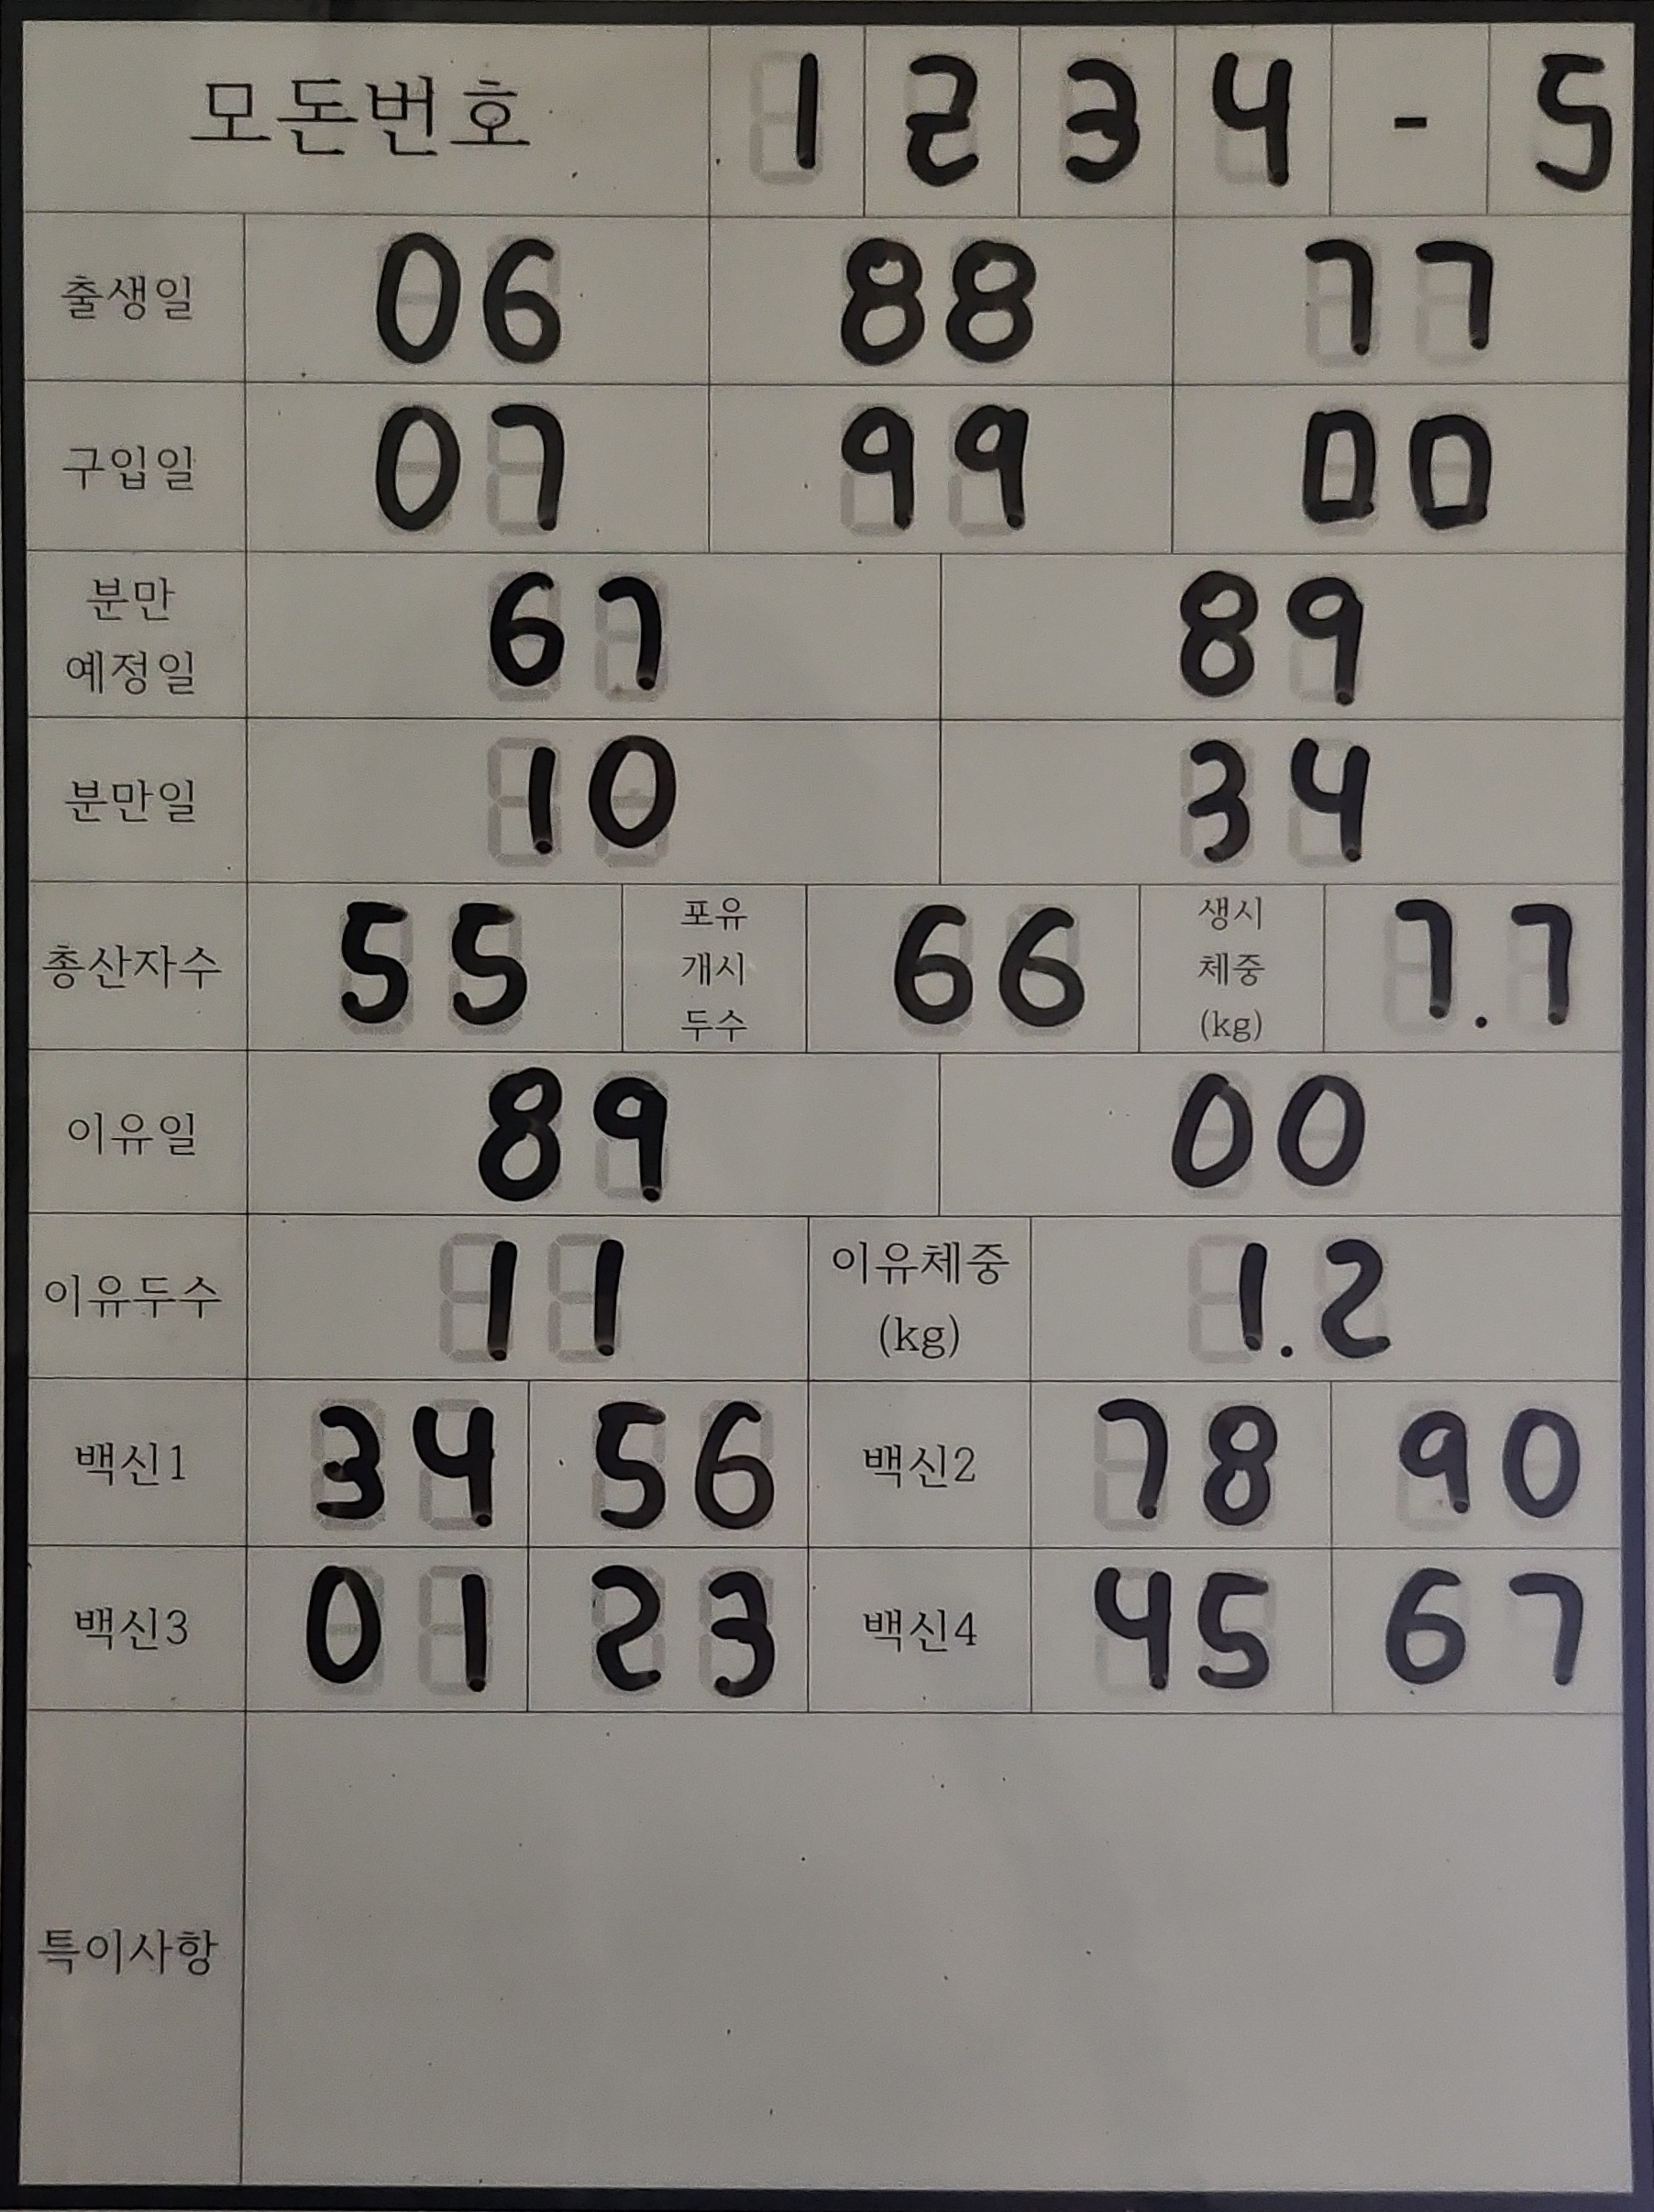 모돈번호 1 2 3 4 - 5
출생일 06 88 77
구입일 07 99 00
분만
예정일 67 89
분만일 10 34
총산자수 55 포유
개시
두수 66 생시
체중
(kg) 7.7
이유일 89 00
이유두수 11 이유체중
(kg) 1.2
백신1 34 56 백신2 78 90
백신3 01 23 백신4 45 67
특이사항